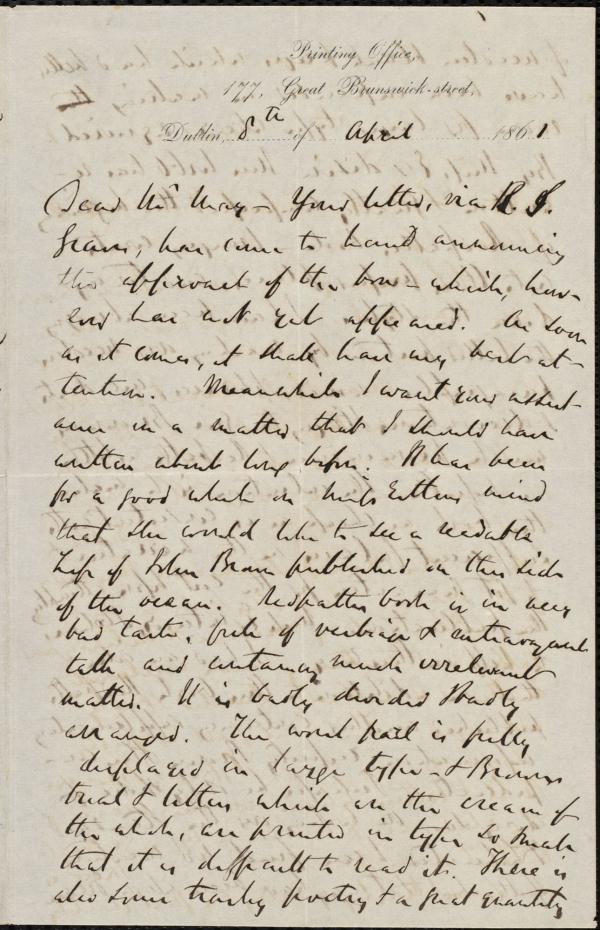 Printing Office,
177, Great Brunswick-street,
Dublin, 8th of April 1861
Dear Mr May – Your letter, via R. S.
has come to hand announcing
the approach of the box – which, how-
ever has not yet appeared. As soon
as it comes, it shall have my best at-
tention. Meanwhile I want your assist-
ance in a matter that I should have
written about long before. It has been
for a good while in Miss Estlin's mind
that she would like to see a readable
Life of John Brown published on this side
of the ocean. Redpath's book is in very
bad taste, full of verbiage & extravagant
talk and containing much irrelevant
matter. It is badly divided & badly
arranged. The worst part is fully
displayed in large type – & Brown's
trial & letters which are the cream of
the whole, are printed in type so small
that it is difficult to read it. There is
also some trashy poetry & a great quantity